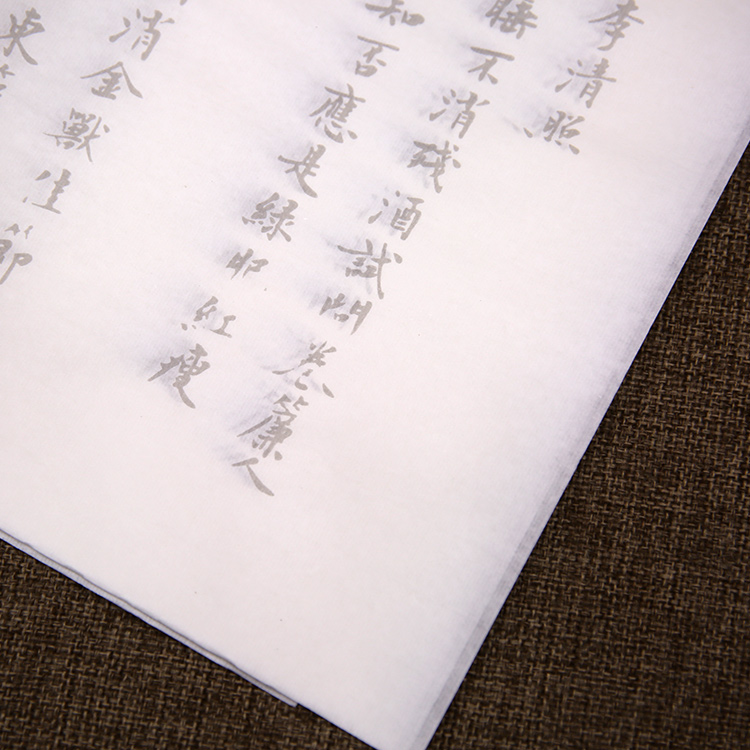 李清照
睡不消殘酒試問卷簾人
知否應是綠肥紅瘦
消金獸佳節
東